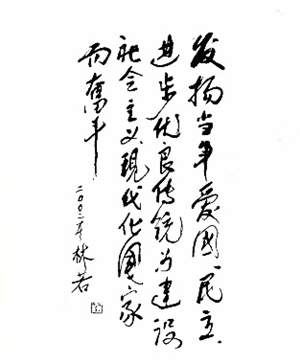 发扬当年爱国、民主、
进步优良传统为建设
社会主义现代化国家
而奋斗
二〇〇二年 林若